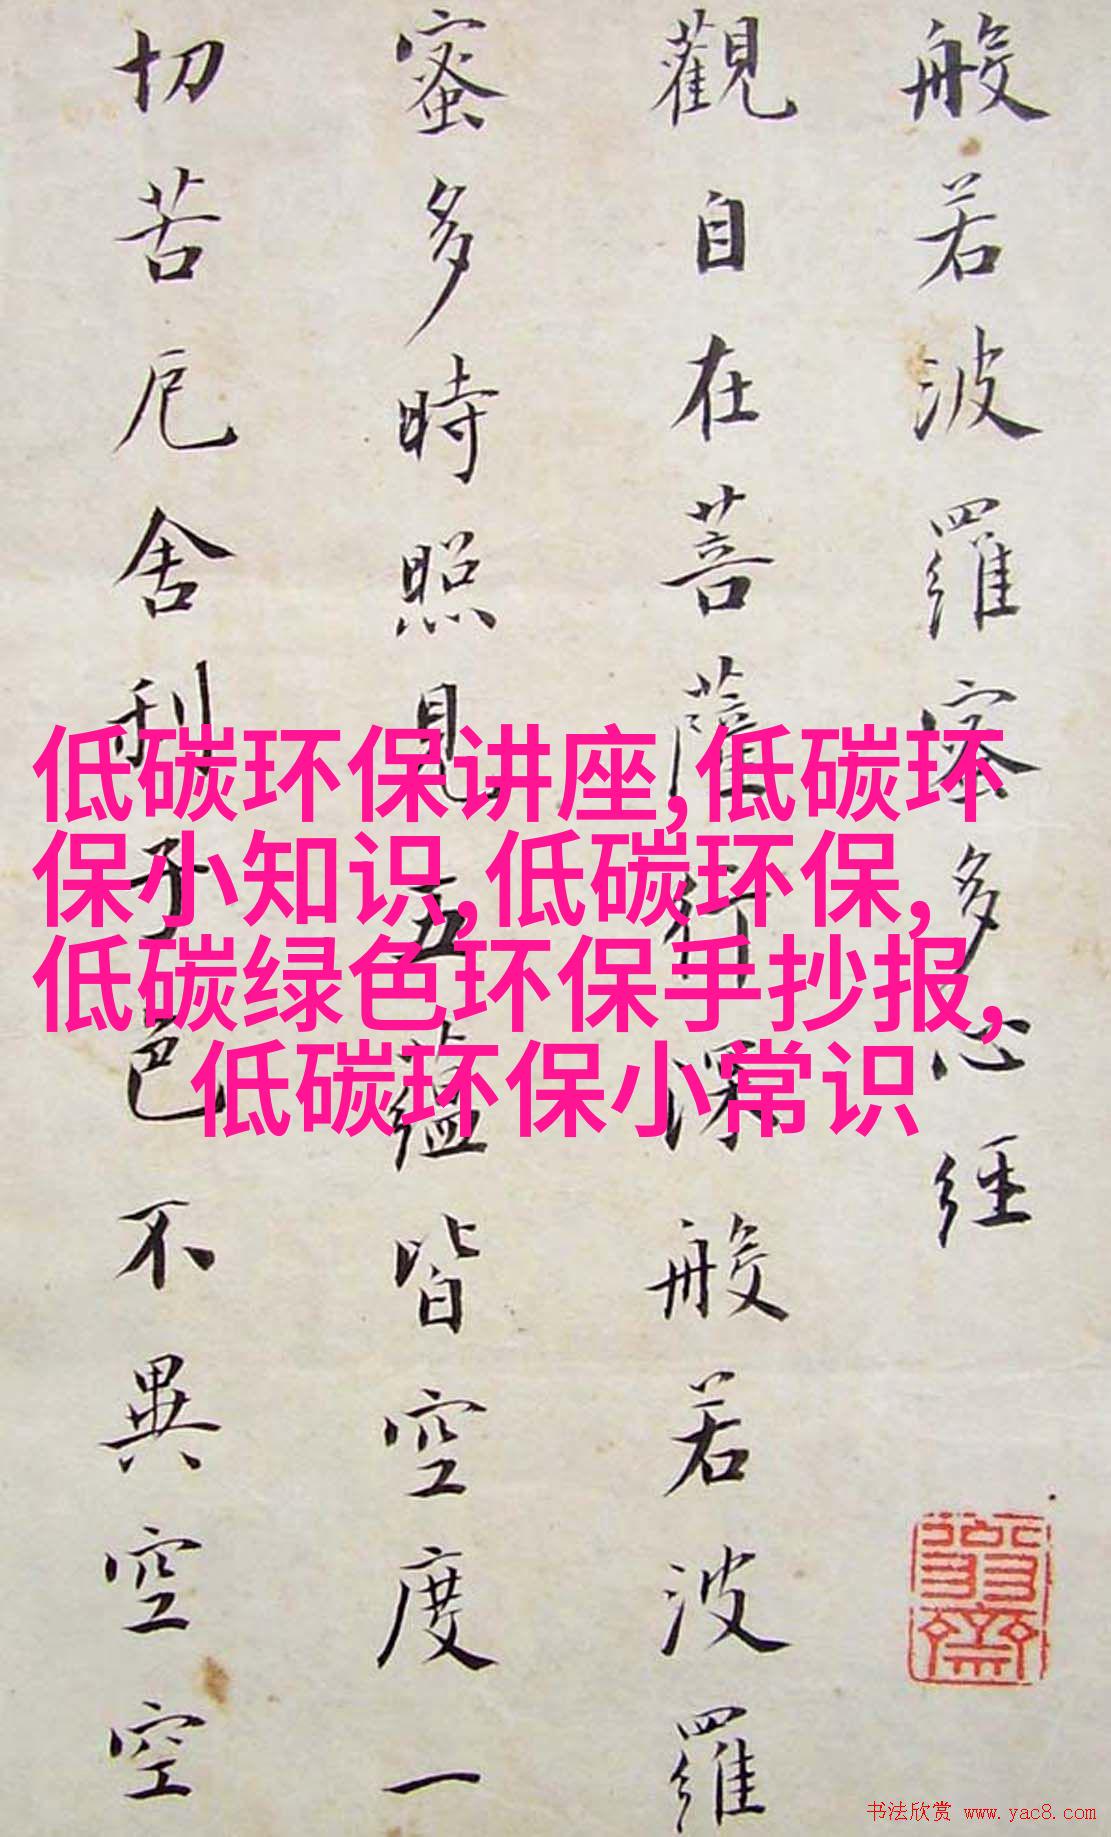 般若波羅蜜多心經
觀自在菩薩行深般若波羅
蜜多時照見五蘊皆空度一
切苦厄舍利子色不異空空
低碳环保讲座,低碳环
保小知识,低碳环保,
低碳绿色环保手抄报,
低碳环保小常识
书法欣赏 www.yac8.com